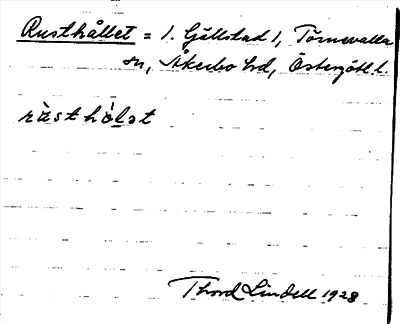 Rusthållet = 1. Gällstad 1, Törnevalla
sn, Åkerbo hd, Östergötl. l.
rùsthòlət
Thord Lindell 1928